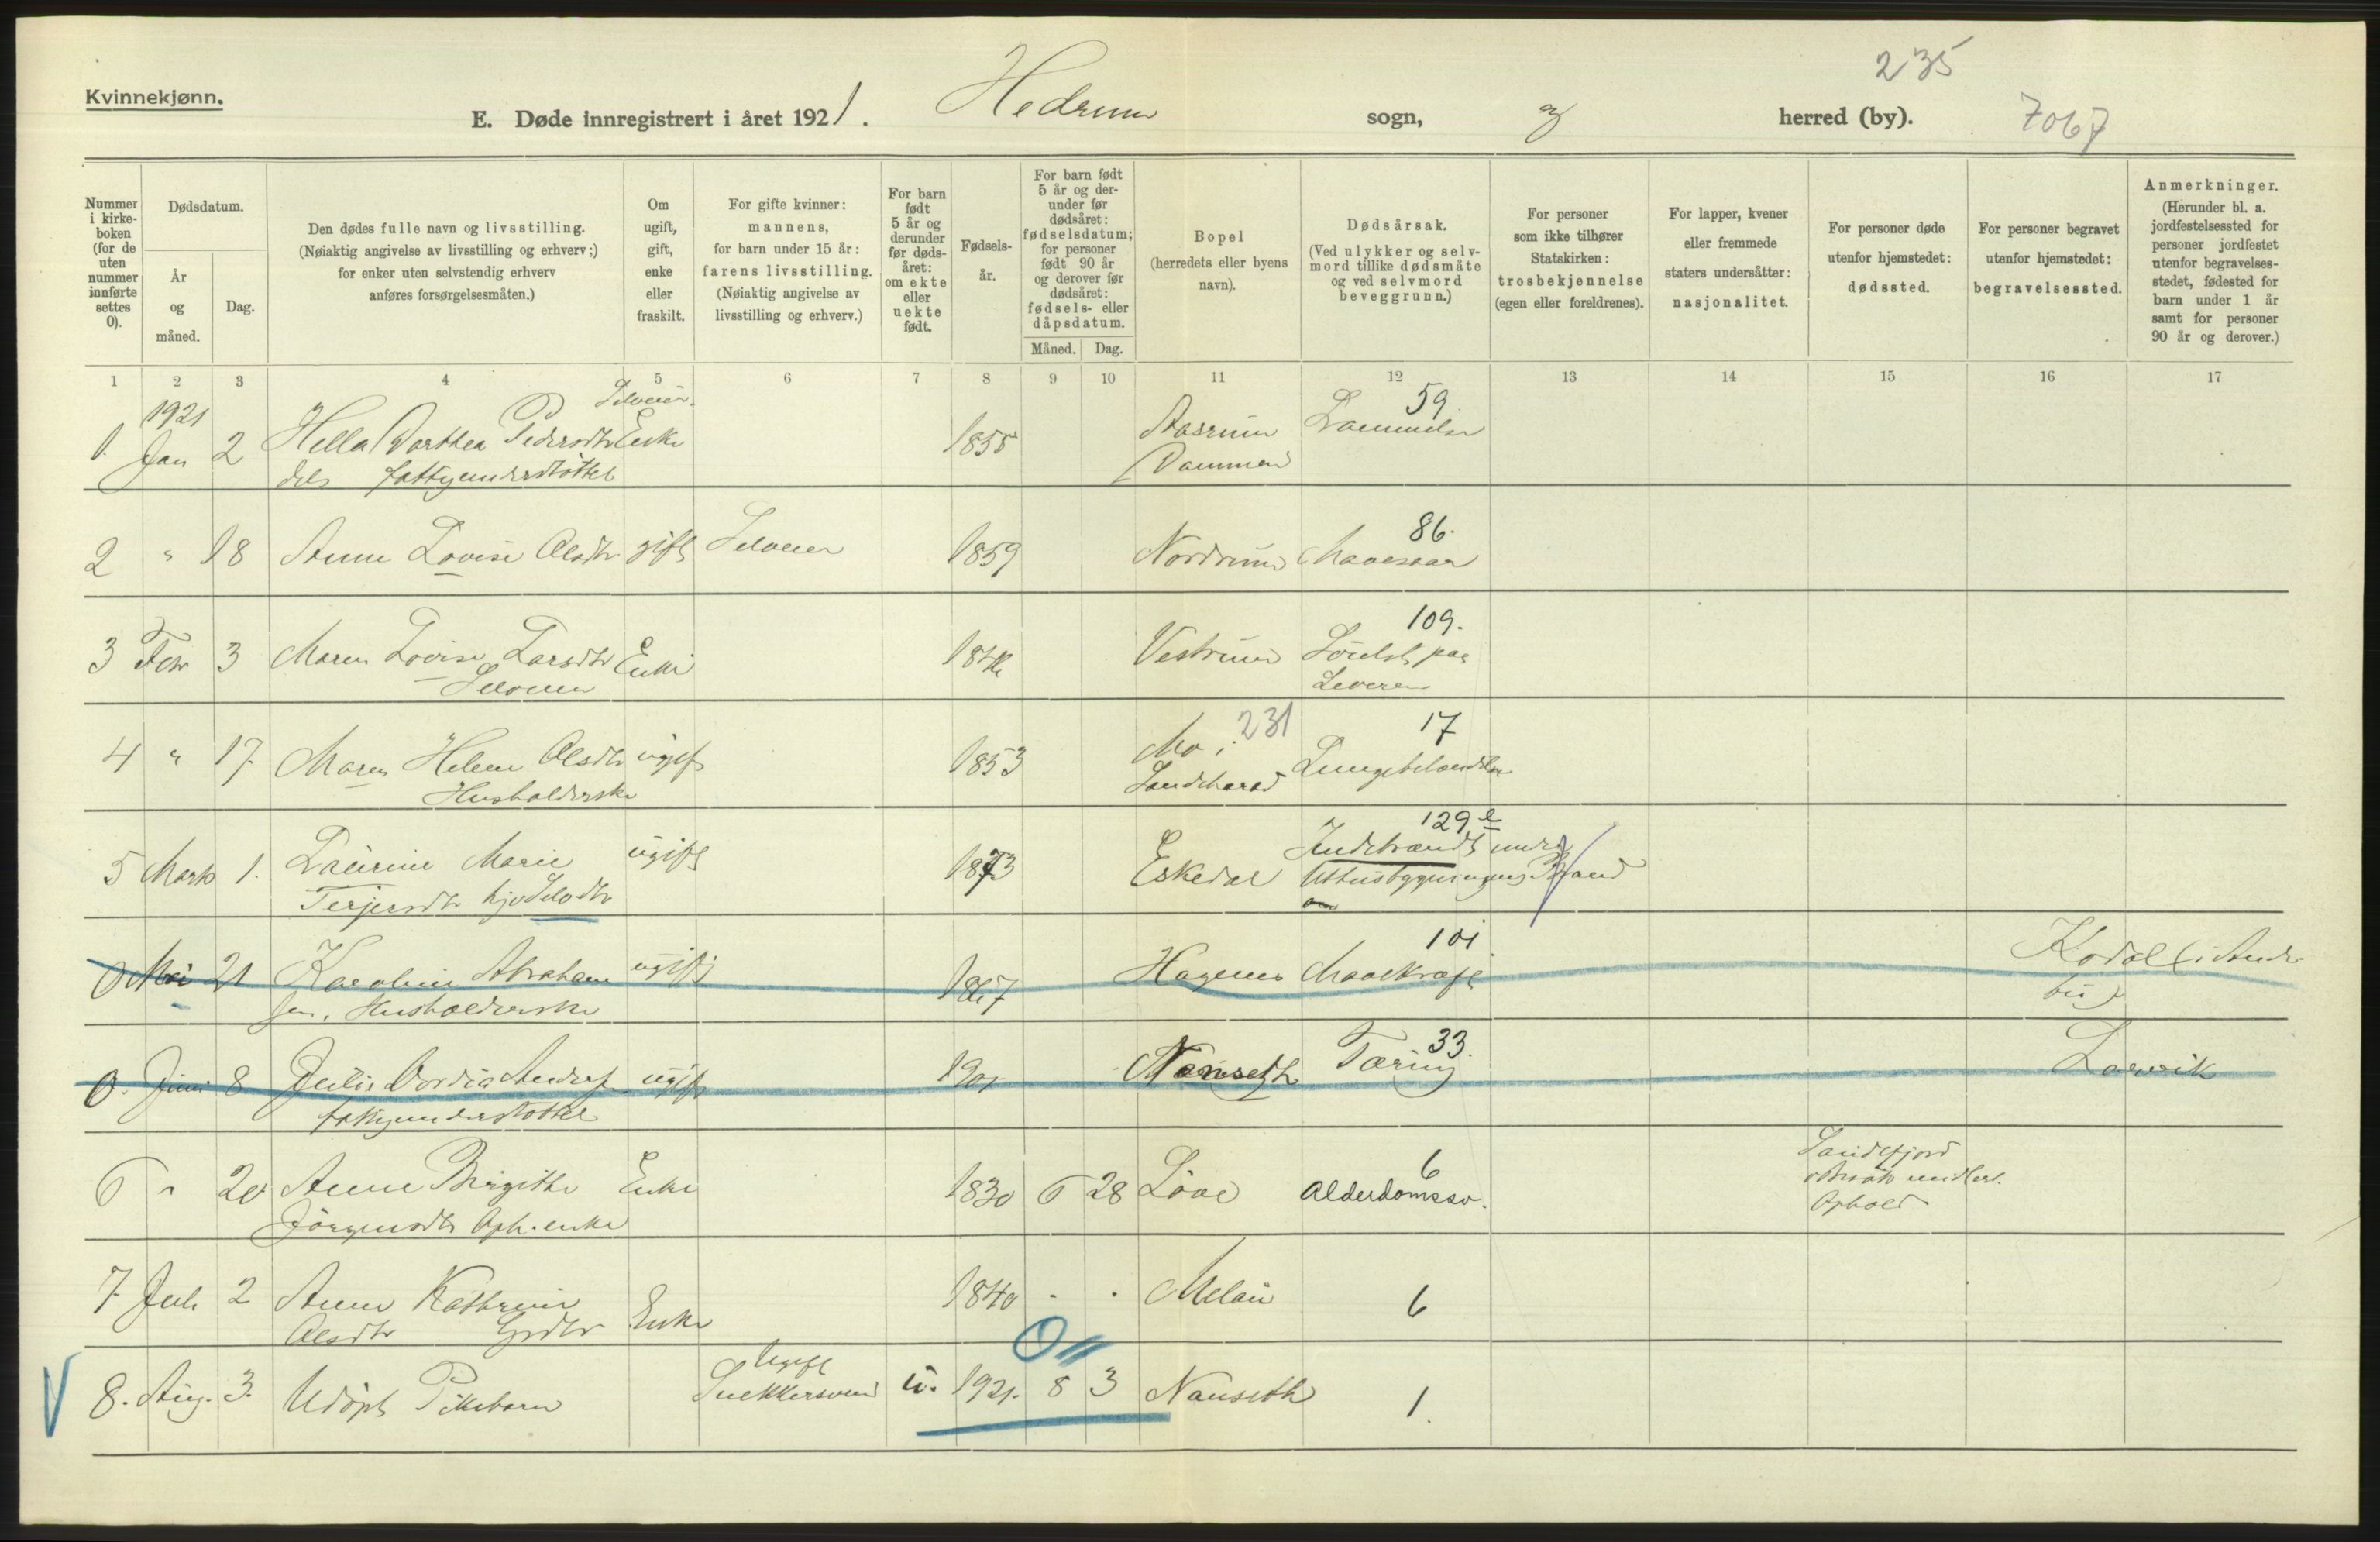 Kvinnekjønn.
E. Døde innregistrert i året 1921. Hedrum sogn, og herred (by).
235
7067
Nummer i kirkeboken (for de uten nummer innførte settes 0).
Dødsdatum.
År og måned.
Dag.
Den dødes fulle navn og livsstilling.
(Nøiaktig angivelse av livsstilling og erhverv;)
for enker uten selvstendig erhverv
anføres forsørgelsesmåten.)
Om ugift, gift, enke eller fraskilt.
For gifte kvinner:
mannens,
for barn under 15 år:
farens livsstilling.
(Nøiaktig angivelse av
livsstilling og erhverv.)
For barn født 5 år og derunder før dødsåret: om ekte eller uekte født.
Fødselsår.
For barn født 5 år og derunder før dødsåret: fødselsdatum; for personer født 90 år og derover før dødsåret: fødsels- eller dåpsdatum.
Måned. Dag.
Bopel
(herredets eller byens
navn).
Dødsårsak.
(Ved ulykker og selvmord tillike dødsmåte og ved selvmord beveggrunn.)
For personer
som ikke tilhører
Statskirken:
trosbekjennelse
(egen eller foreldrenes).
For lapper, kvener
eller fremmede
staters undersåtter:
nasjonalitet.
For personer døde
utenfor hjemstedet:
dødssted.
For personer begravet
utenfor hjemstedet:
begravelsessted.
Anmerkninger.
(Herunder bl. a.
jordfestelsessted for
personer jordfestet
utenfor begravelses-
stedet, fødested for
barn under 1 år
samt for personer
90 år og derover.)
1 2 3 4 5 6 7 8 9 10 11 12 13 14 15 16 17
1921 59.
1. Jan 2 Hella Dorthea Pedersdtr Enke 1855 Aasrum
dels fattigunderstøttet Dammen
86.
2 " 18 Anne Lovise Olsdtr gift 1859 Nordrum Mavesaar
109.
3 Febr 3 Maren Lovise Larsdtr Enke Vestrum paa
Leveren
231 17
4 " 17 Maren Helene Olsdtr ugift 1853 Mo i Lungebetændelse
Husholderske Sandeherad
129 e
5 Marts 1. Laurine Marie ugift 1873 Eskedal Indebrændt under
Terjersdtr Uthusbygningens Brand
101
0 Mai 21 Karoline Abraham ugift 1867 Hagenes Mavekræft Kodal (i Andebu)
sen. Husholderske
33.
0. Juni 8 Julie Dordia Anders ugift 1901 Nanseth Tæring Larvik
fattigunderstøttet
6
6 " 20 Anne Birgitte Enke 1830 6 28 Løve Alderdomssv. Sandefjord
Jørgensdtr Oph. enke Ophold
7 Juli 2 Anne Kathrine Enke 1840 Melau 6
Olsdtr Grdbr
Ugift
8. Aug. 3. Udøpt Pikebarn Snekkersvend u. 1921. 8 3 Nanseth 1.